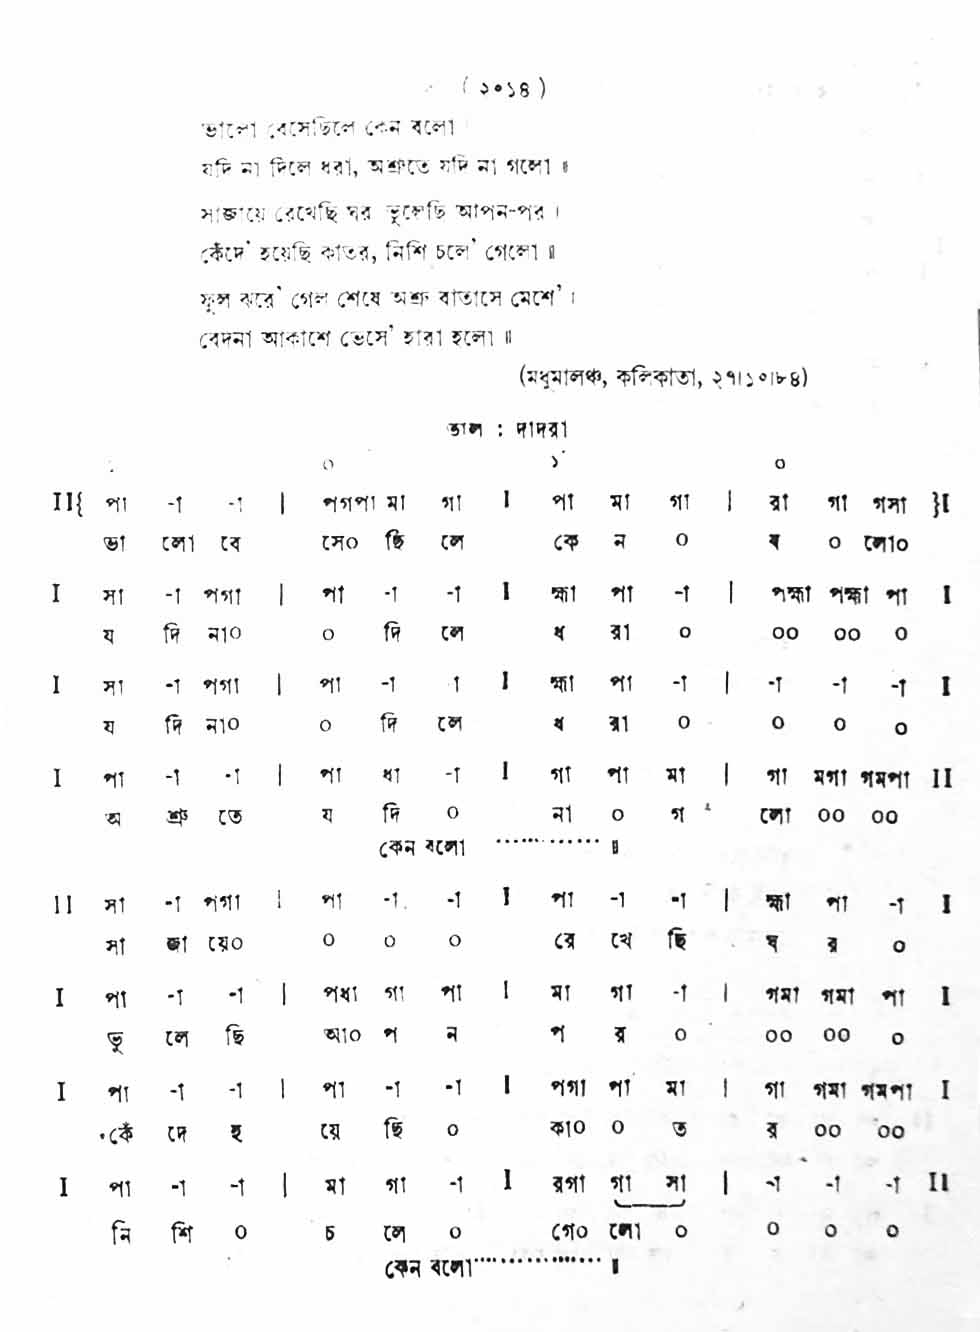 ( ২০১৪ )
ভালো বেসেছিলে কেন বলো
যদি না দিলে ধরা, অশ্রুতে যদি না গলো ॥
সাজায়ে রেখেছি ঘর ভুলেছি আপন-পর ।
কেঁদে' হয়েছি কাতর, নিশি চলে' গেলো ॥
ফুল ঝরে' গেল শেষে অশ্রু বাতাসে মেশে' ।
বেদনা আকাশে ভেসে' হারা হলো ॥
(মধুমালঞ্চ, কলিকাতা, ২৭।১০।৮৪)
তাল : দাদরা
০ ১' ০
II{ পা -া -া | পগপা মা গা I পা মা গা | রা গা গসা }I
ভা লো বে সে০ ছি লে কে ন ০ ব ০ লো০
I সা -া পগা | পা -া -া I হ্মা পা -া | পহ্মা পহ্মা পা I
য দি না০ ০ দি লে ধ রা ০ ০০ ০০ ০
I সা -া পগা | পা -া া I হ্মা পা -া | -া -া -া I
য দি না০ ০ দি লে ধ রা ০ ০ ০ ০
I পা -া -া | পা ধা -া I গা পা মা | গা মগা গমপা II
অ শ্রু তে য দি ০ না ০ গ লো ০০ ০০
কেন বলো ............... ॥
II সা -া পগা | পা -া -া I পা -া -া | হ্মা পা -া I
সা জা য়ে০ ০ ০ ০ রে খে ছি ঘ র ০
I পা -া -া | পধা গা পা I মা গা -া | গমা গমা পা I
ভু লে ছি আ০ প ন প র ০ ০০ ০০ ০
I পা -া -া | পা -া -া I পগা পা মা | গা গমা গমপা I
কেঁ দে হ য়ে ছি ০ কা০ ০ ত র ০০ ০০
I পা -া -া | মা গা -া I রগা গা সা | -া -া -া II
নি শি ০ চ লে ০ গে০ লো ০ ০ ০ ০
কেন বলো .................. ॥